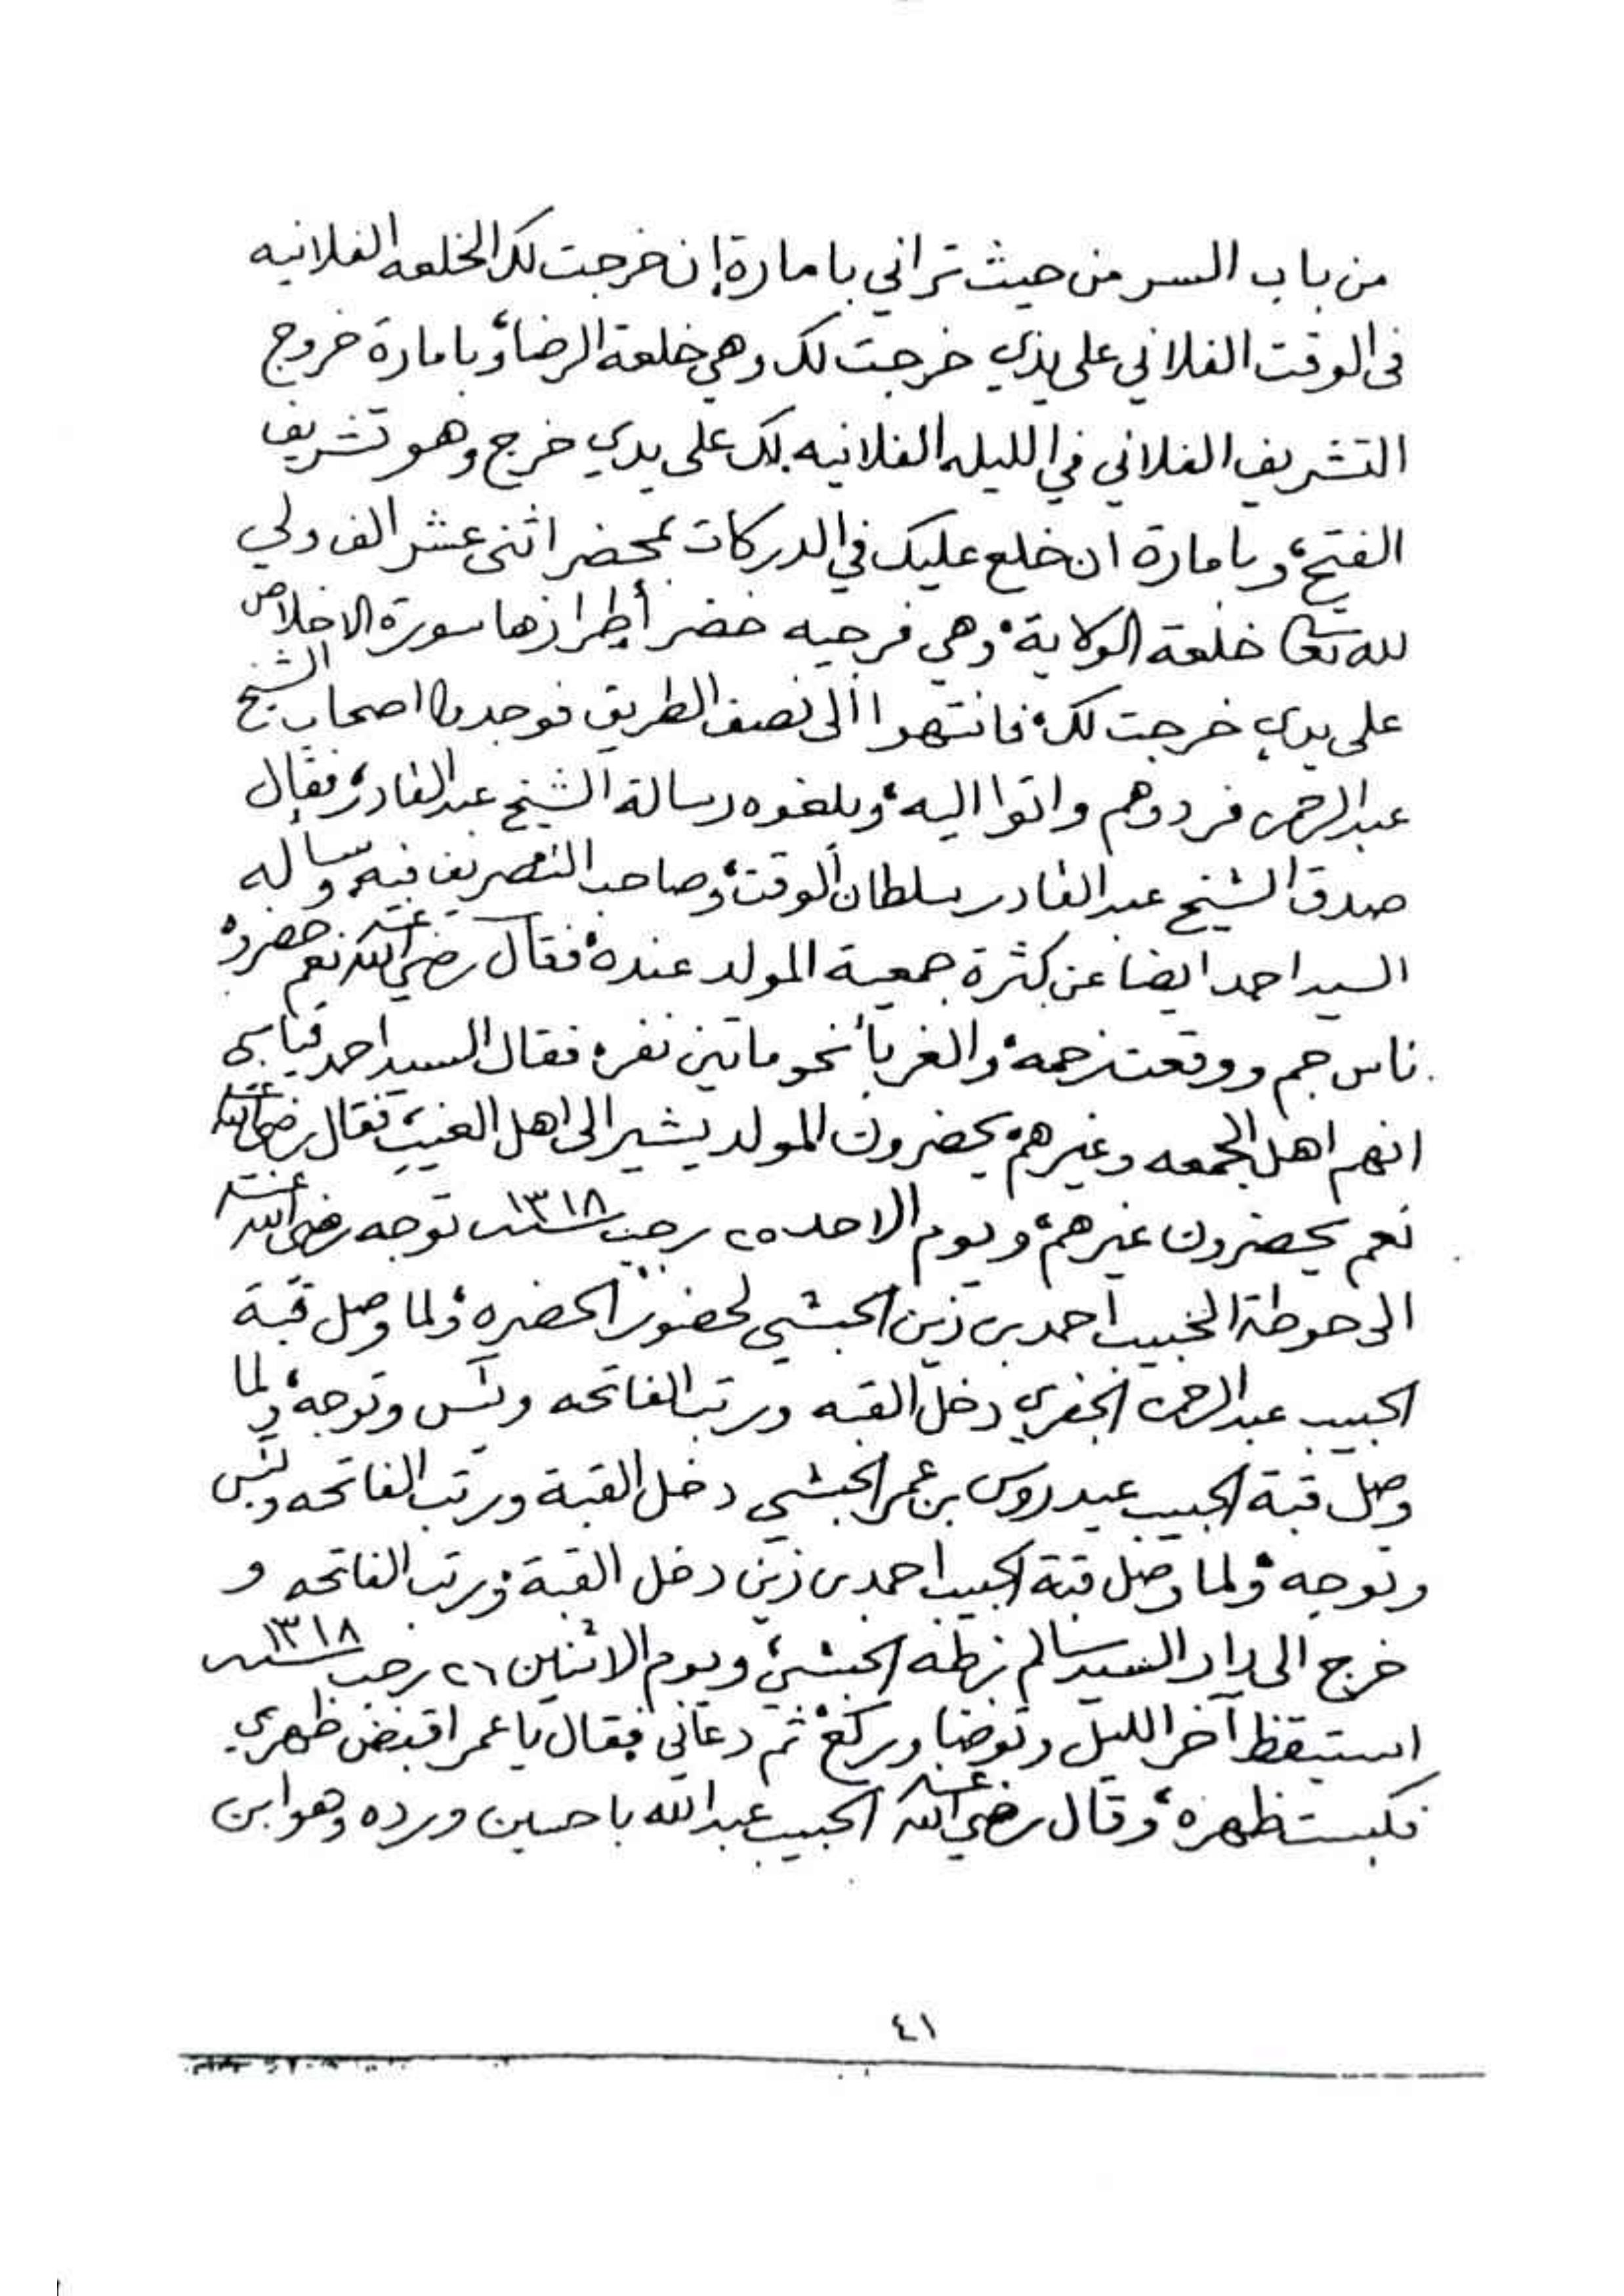 من باب السر من حيث تراني بامارة إن خرجت لك الخلعه الفلانيه
فى الوقت الفلاني على يدي خرجت لك وهي خلعة الرضا، وبامارة خروج
التشريف الفلاني في الليله الفلانيه لك على يدي خرج وهو تشريف
الفتح، وبامارة ان خلع عليك في الدركات بمحضر اثنى عشر الف ولي
لله تعالى خلعة الولاية، وهي فرجيه خضرأ طرازها سورة الاخلاص
على يدي خرجت لك، فانتهوا الى نصف الطريق فوجدوا اصحاب الشيخ
عبدالرحمن فردوهم واتوا اليه، وبلغوه رسالة الشيخ عبدالقادر، فقال
صدق الشيخ عبدالقادر سلطان الوقت، وصاحب التصريف فيه، وسأله
السيد احمد ايضا عن كثرة جمعية المولد عنده، فقال رضي الله عنه نعم حضره
ناس جم ووقعت زحمه، والغربأ نحو ماتين نفر، فقال السيد احمد قياسي
انهم اهل الجمعه وغيرهم يحضرون المولد يشير الى اهل الغيب، فقال رضي الله عنه
نعم يحضرون غيرهم، ويوم الاحد ٢٥ رجب سنة ١٣١٨ توجه رضي الله عنه
الى حوطة الحبيب احمد بن زين الحبشي لحضور الحضره، ولما وصل قبة
الحبيب عبدالرحمن الجفري دخل القبه ورتب الفاتحه ويس وتوجه، ولما
وصل قبة الحبيب عيدروس بن عمر الحبشي دخل القبة ورتب الفاتحه ويس
وتوجه، ولما وصل قبة الحبيب احمد بن زين دخل القبة، ورتب الفاتحه و
خرج الى دار السيد سالم بن طه الحبشي، ويوم الاثنين ٢٦ رجب سنة ١٣١٨
استيقظ آخر الليل وتوضا وركع، ثم دعاني فقال يا عمر اقبض ظهري
فكبست ظهره، وقال رضي الله عنه الحبيب عبدالله باحسين ورده وهو ابن
٤١